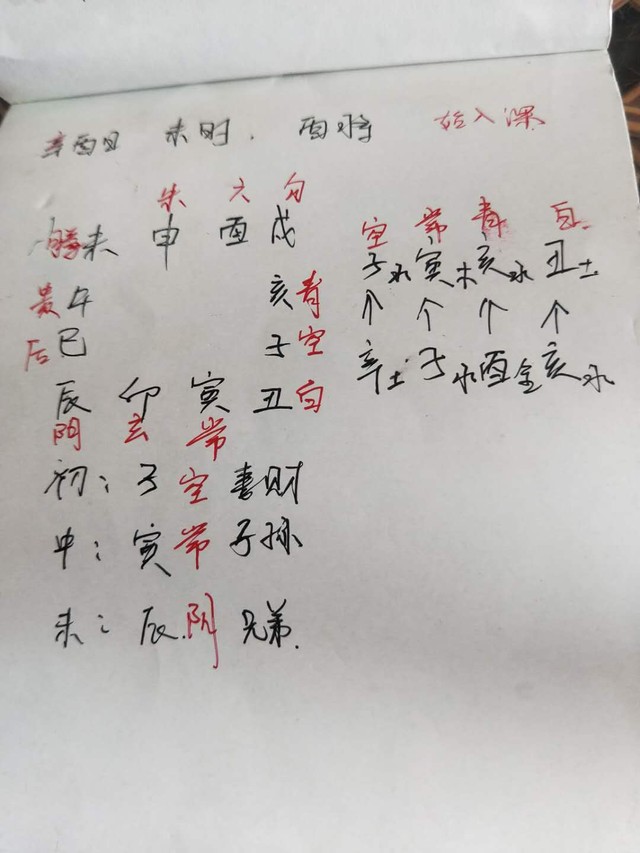 辛酉日 未时. 酉将 始入
朱 六 勾
腾未 申 酉 戌
贵午 亥青
后巳 子空
辰 卯 寅 丑白
阴 玄 常
空 常 青 白
子水 寅木 亥水 丑土
↑ ↑ ↑ ↑
辛土 子水 酉金 亥水
初: 子空 妻财
中: 寅常 子孙
末: 辰.阴 兄弟.